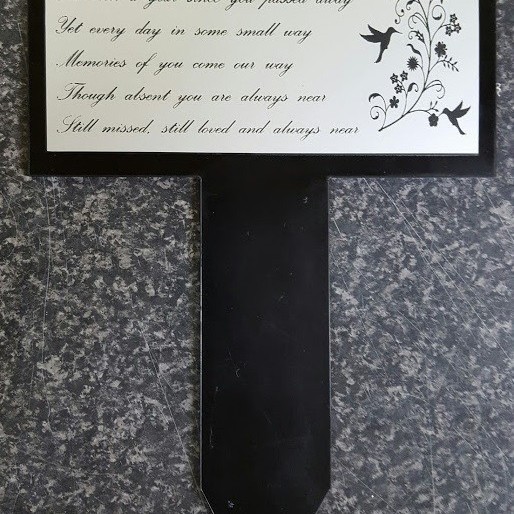 a year since you passed away
Yet every day in some small way
Memories of you come our way
Though absent you are always near
Still missed, still loved and always near